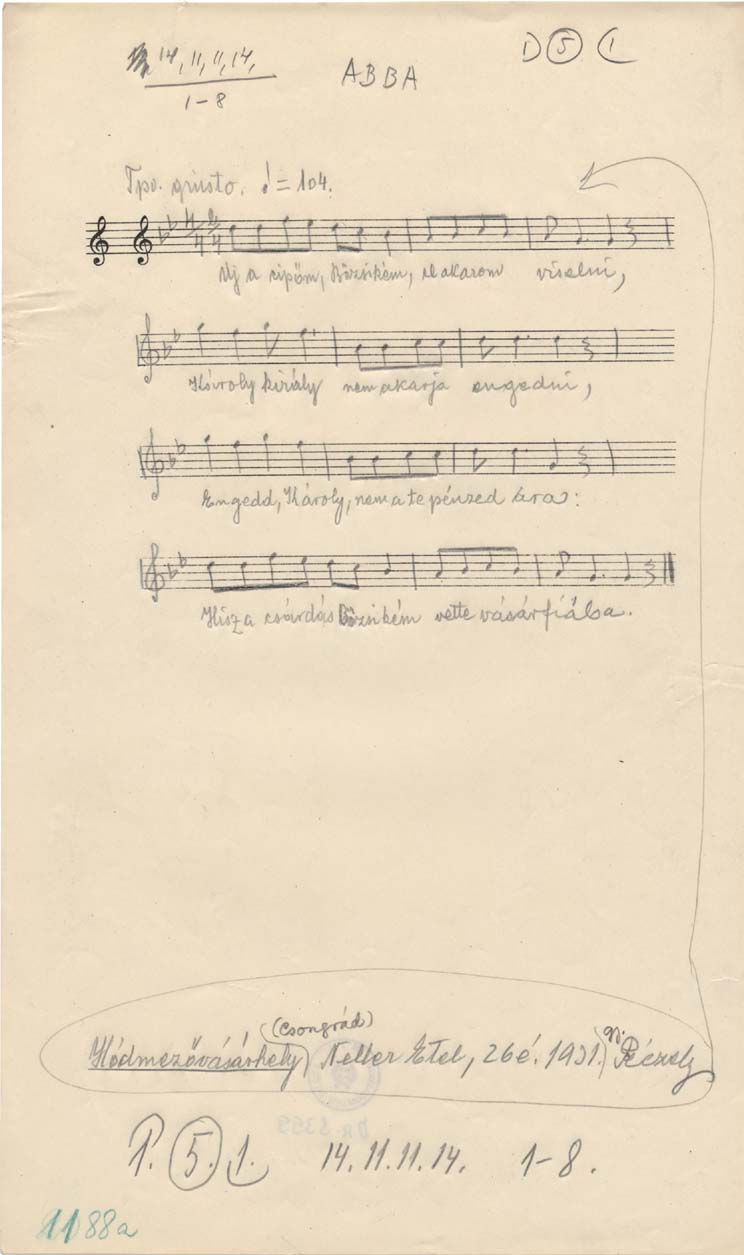 14, 11, 11, 14,
1-8
ABBA
1) 5 (1
Tpo. giusto. ♩= 104.
Uj a cipőm, Bözsikém, el akarom viselni,
Károly király nem akarja engedni,
Engedd, Károly, nem a te pénzed ára:
Hisz a csárdás Bözsikém vette vásárfiába.
(Csongrád)
Hódmezővásárhely) Neller Etel, 26 é. 1931. Péczely
1. 5. 1. 14. 11. 11. 14. 1-8.
1188a